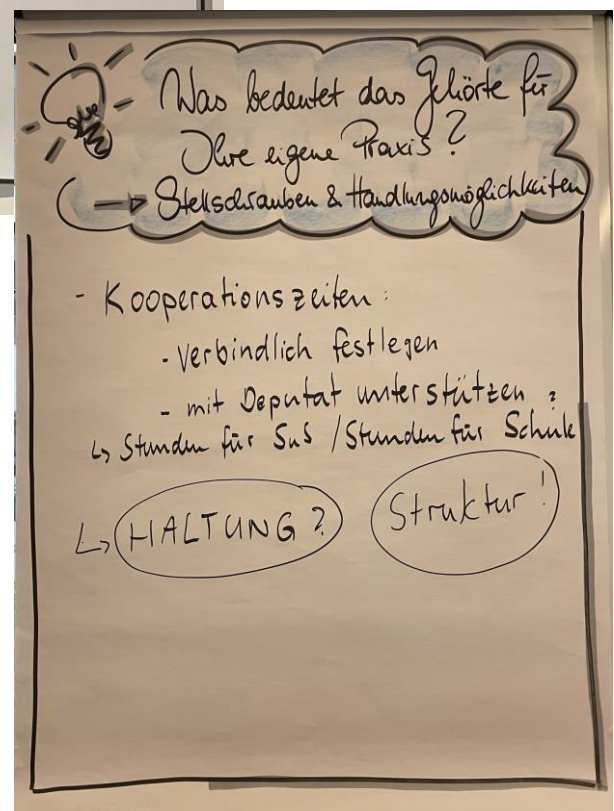 Was bedeutet das Gehörte für
Ihre eigene Praxis?
→ Stellschrauben & Handlungsmöglichkeiten
- Kooperationszeiten:
- Verbindlich festlegen
- mit Deputat unterstützen?
↳ Stunden für SuS / Stunden für Schule
↳ HALTUNG? Struktur!